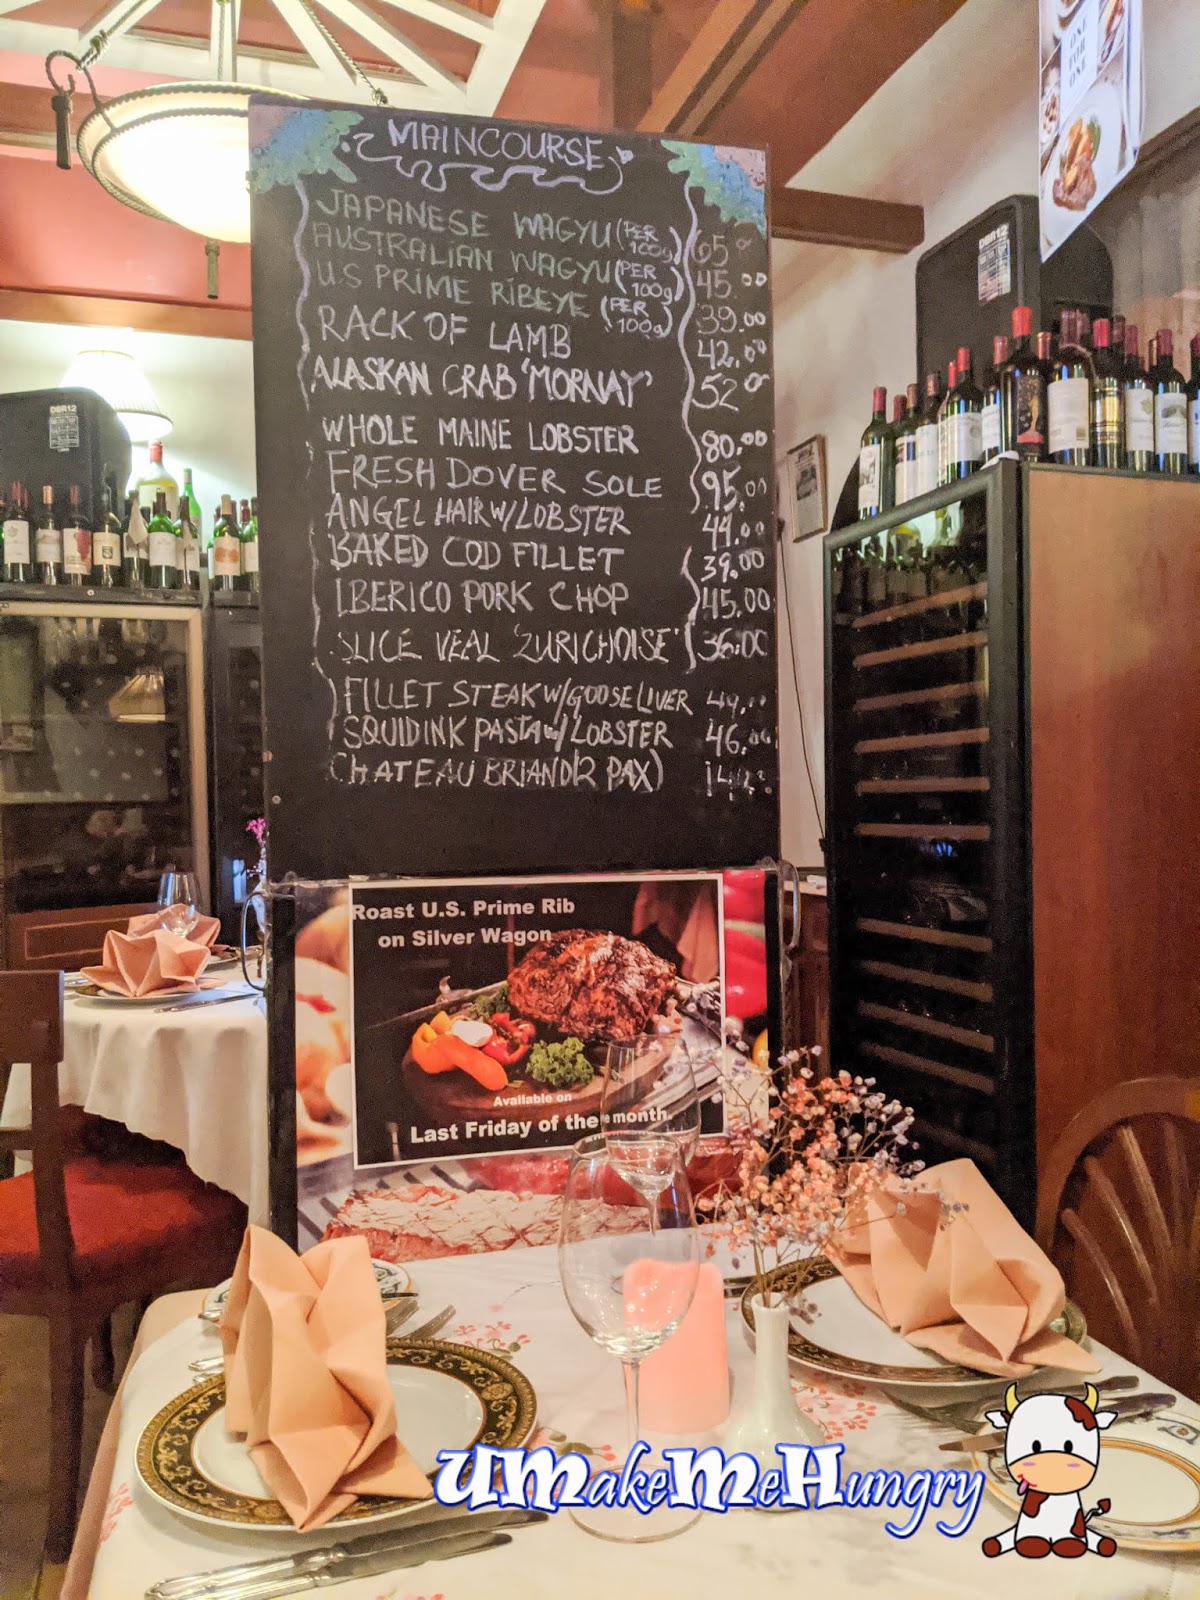 MAINCOURSE
JAPANESE WAGYU (PER 100g) 65.
AUSTRALIAN WAGYU (PER 100g) 45.00
U.S PRIME RIBEYE (PER 100g) 39.00
RACK OF LAMB 42.00
ALASKAN CRAB 'MORNAY' 52
WHOLE MAINE LOBSTER 80.00
FRESH DOVER SOLE 95.00
ANGEL HAIR W/LOBSTER 44.00
BAKED COD FILLET 39.00
IBERICO PORK CHOP 45.00
SLICE VEAL 'ZURICHOISE' 36.00
FILLET STEAK W/GOOSE LIVER 49.00
SQUIDINK PASTA W/ LOBSTER 46.00
CHATEAU BRIAND(2 PAX)
Roast U.S. Prime Rib
on Silver Wagon
Available on
Last Friday of the month.
ONE
FOR
ONE
DBR12
DBR12
UMakeMeHungry